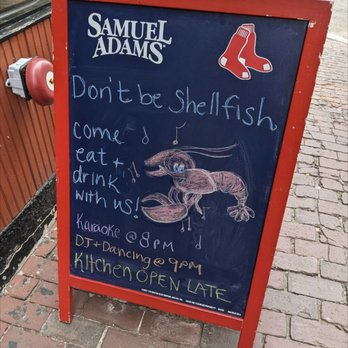 SAMUEL
ADAMS
Don't be Shellfish
come
eat +
drink
with us!
Karaoke @ 8PM
DJ + Dancing @ 9PM
KITCHEN OPEN LATE